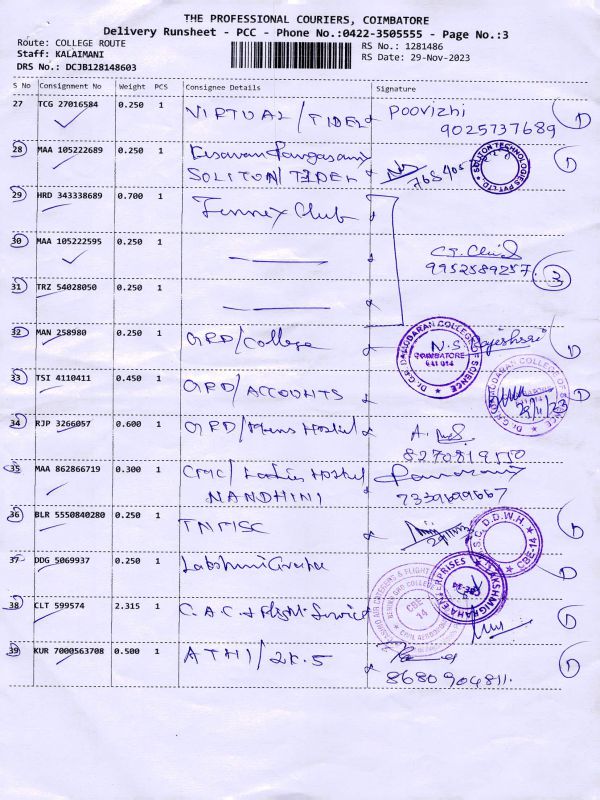 THE PROFESSIONAL COURIERS, COIMBATORE
Delivery Runsheet - PCC - Phone No.:0422-3505555 - Page No.:3
Route: COLLEGE ROUTE
RS No.: 1281486
Staff: KALAIMANI
RS Date: 29-Nov-2023
DRS No.: DCJB128148603
S No Consignment No Weight PCS Consignee Details Signature
27 TCG 27016584 0.250 1 VIRTUAL / TIDEL Poovizhi
9025737689
28 MAA 105222689 0.250 1 Kesavan Rangasamy
SOLITON / TIDEL
SOLITON TECHNOLOGIES PVT. LTD.
29 HRD 343338689 0.700 1 Club
30 MAA 105222595 0.250 1
9952589257. 3
31 TRZ 54028050 0.250 1
32 MAN 258980 0.250 1 GRD / College N.S.
COIMBATORE
641 014
33 TSI 4110411 0.450 1 GRD / ACCOUNTS
29/11/23
34 RJP 3266057 0.600 1 GRD / Mens Hostel A.
35 MAA 862866719 0.300 1 CMC / Ladies Hostel
NANDHINI 7339699667
36 BLR 5550840280 0.250 1
S.C. D.D.W.H. CBE-14
37 DDG 5069937 0.250 1 Lakshmi
LAKSHMIGRAHA ENTERPRISES
38 CLT 599574 2.315 1 C.A.C & Flight Service
CBE
14
39 KUR 7000563708 0.500 1 ATHI / 2K.5
8680904811.